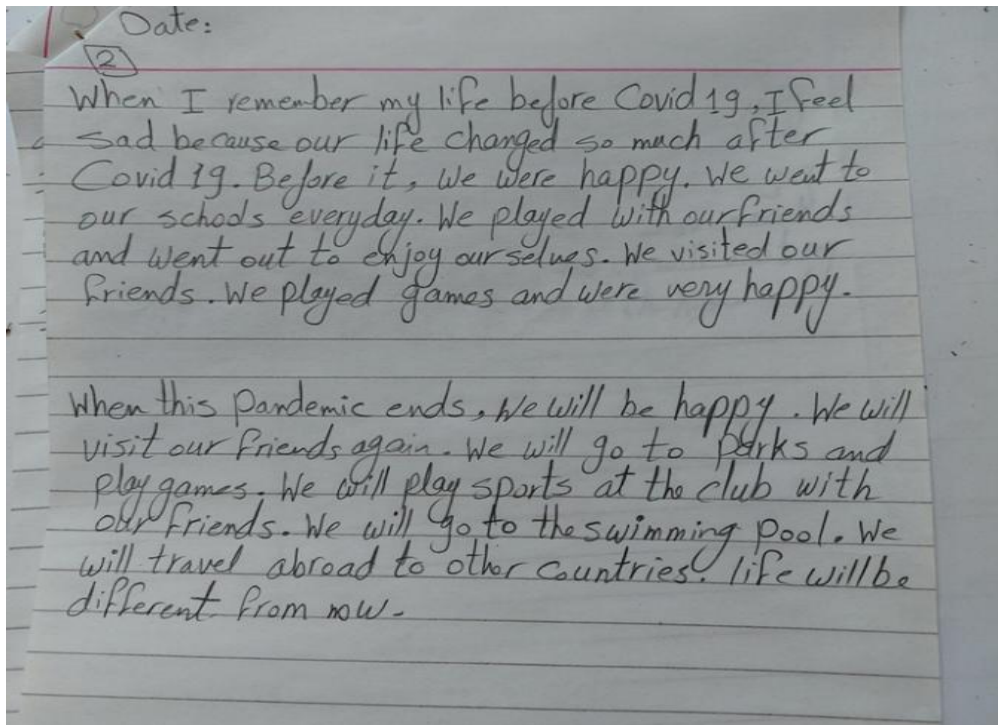 Date:
2
When I remember my life before Covid 19, I feel
sad because our life changed so much after
Covid 19. Before it, we were happy. We went to
our schools everyday. We played with our friends
and went out to enjoy our selves. We visited our
friends. We played games and were very happy.
When this pandemic ends, we will be happy. We will
visit our friends again. We will go to parks and
play games. We will play sports at the club with
our friends. We will go to the swimming pool. We
will travel abroad to other countries. life will be
different from now.